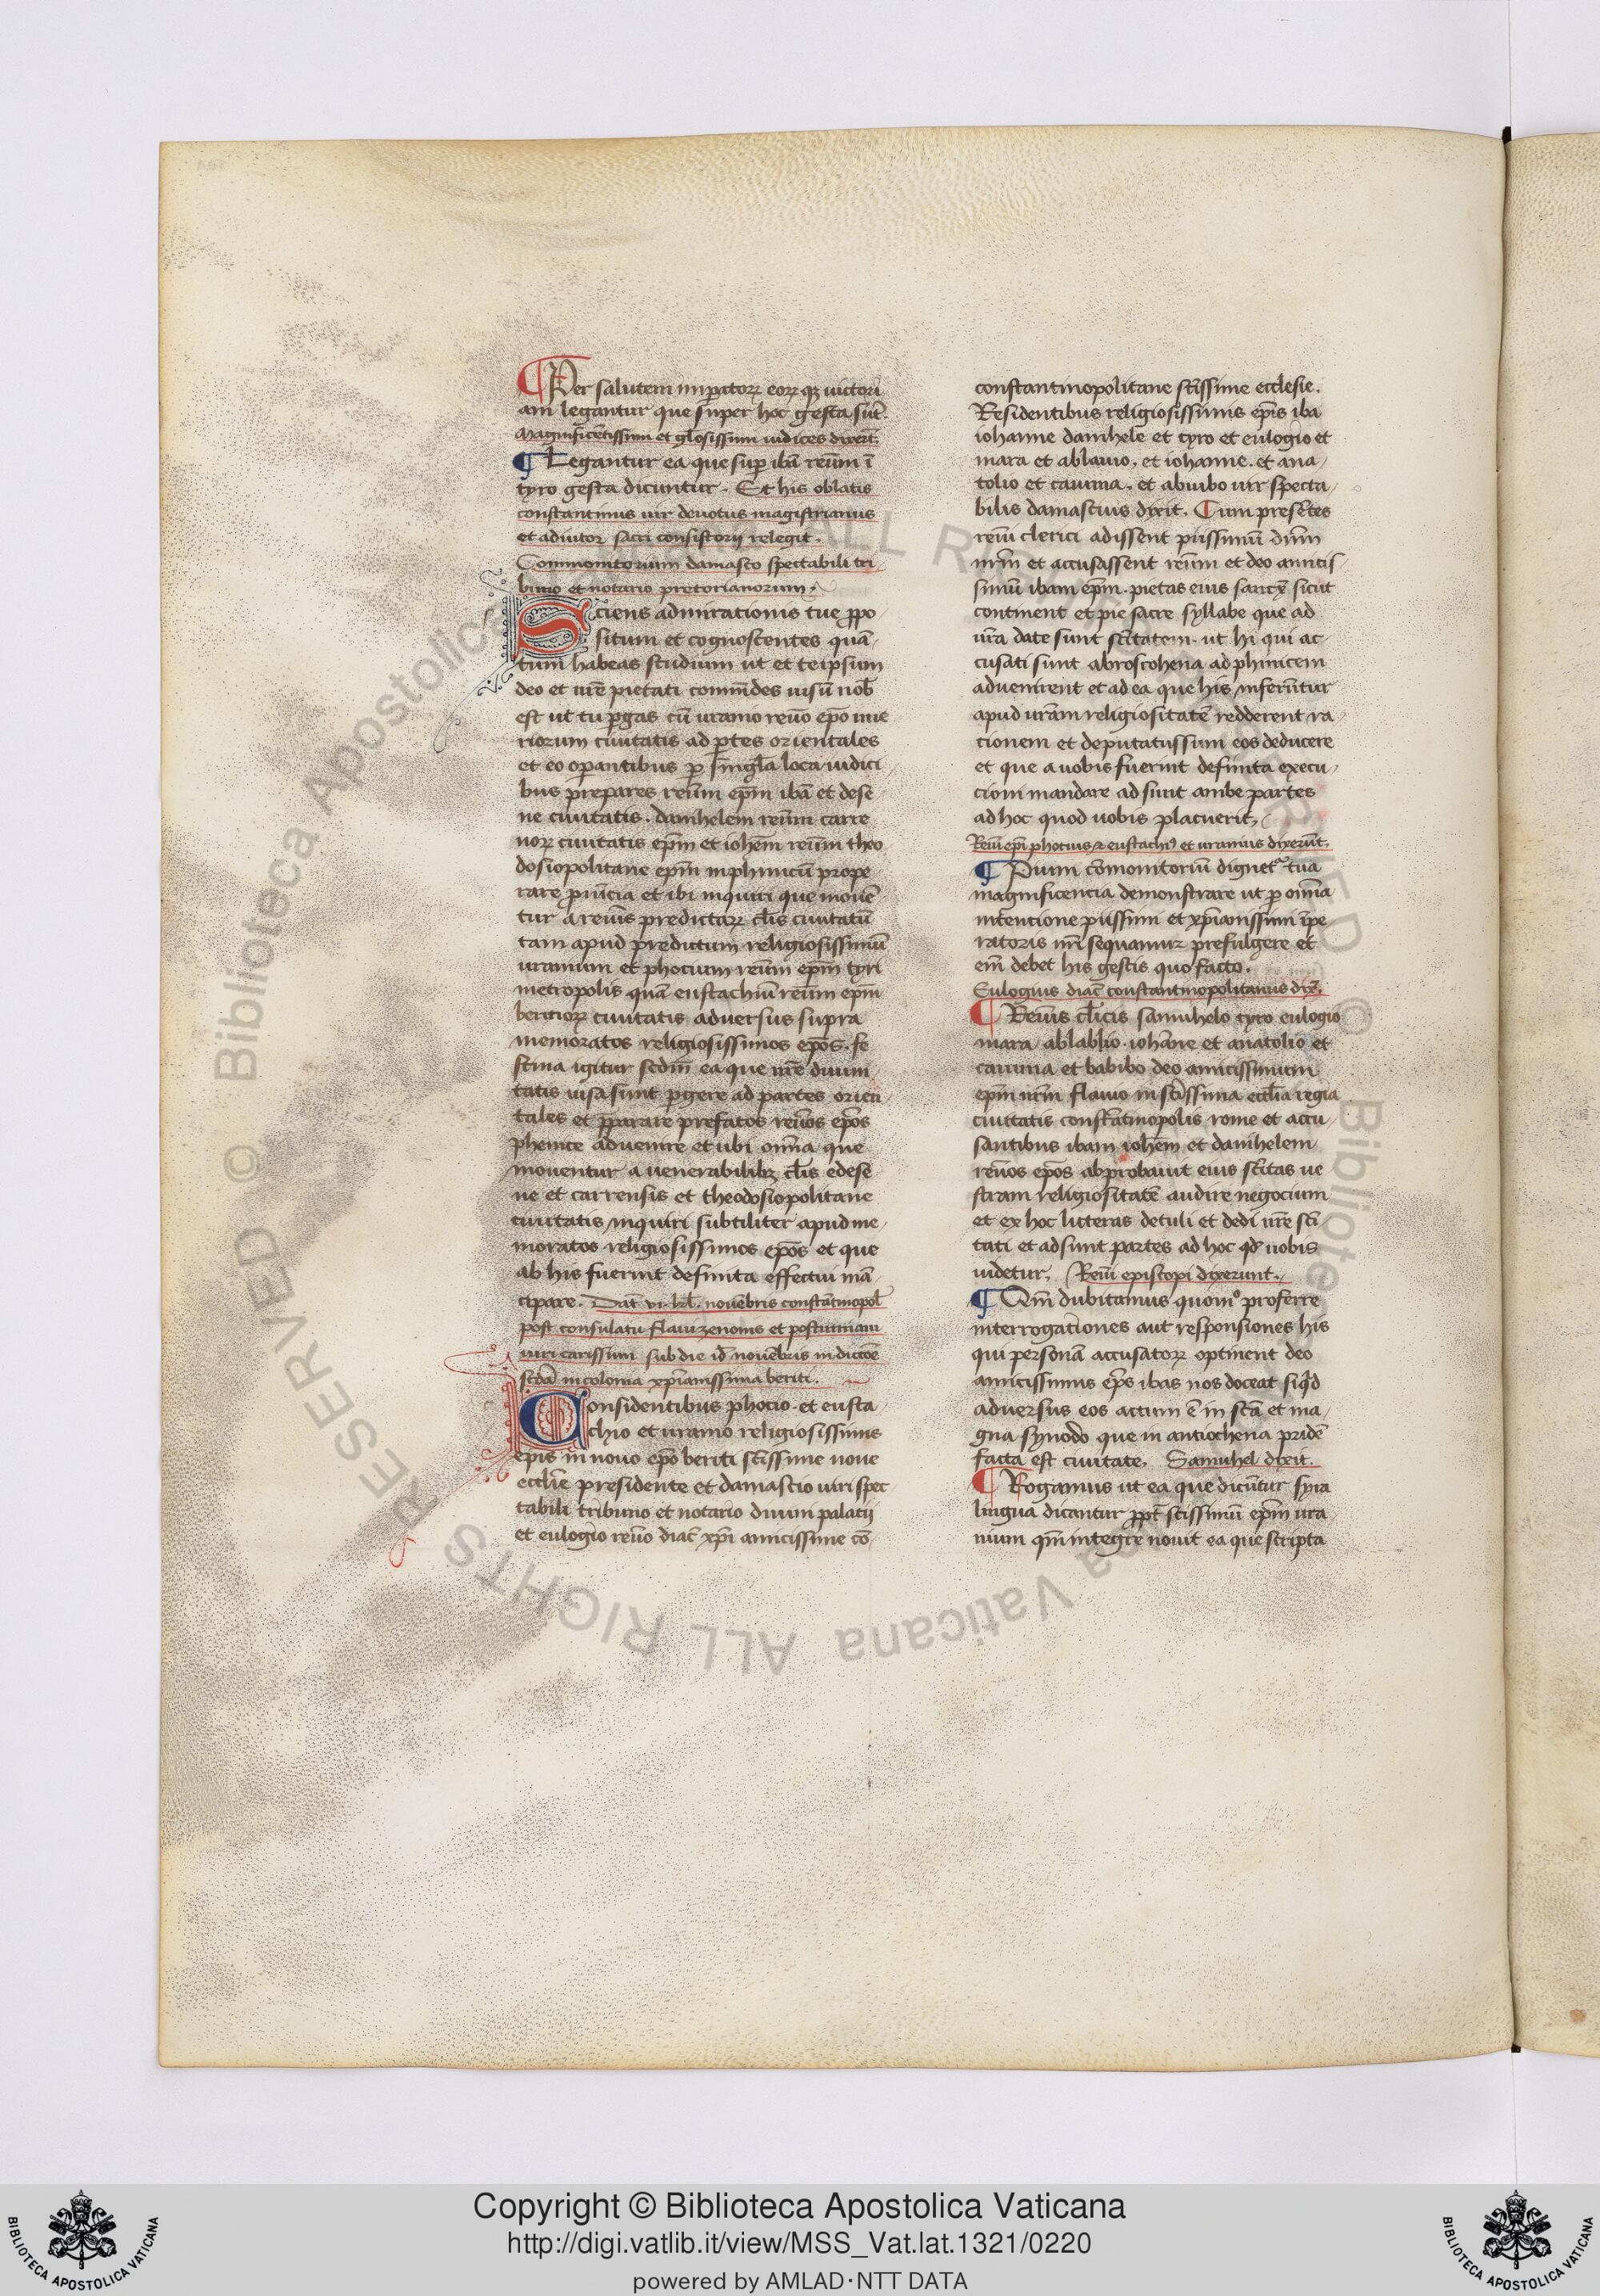 Per salutem imꝑatoꝝ eoꝝqꝫ uictori
am legantur que super hoc gesta sūt.
Magnificētissimi et gl̄osissimi iudices dixerūt.
¶ Legantur ea que suꝑ ibā reūm ī
tyro gesta dicuntur. Et his oblatis
constantinus uir deuotus magistrianus
et adiutor sacri consistorij relegit.
Commonitorium damasco spectabili tri
buno et notario pretorianorum.
Sciens admirationis tue ꝓpo
situm et cognoscentes quā
tum habeas studium ut et teipsum
deo et nr̄e pietati commēdes uisū nob̄
est ut tu ꝑgas cū uranio reuō ep̄o imē
riorum ciuitatis ad ꝑtes orientales
et eo oꝑantibus ꝑ singl̄a loca iudici
bus prepares reūm ep̄m ibā et dese
ne ciuitatis. danihelem reūm carre
noꝝ ciuitatis ep̄m et ioh̄em reūm theo
dosiopolitane ep̄m inphinicū prope
rare ꝓuīcia et ibi inquiri que mouē
tur a reuīs predictaꝝ cl̄is ciuitatū
tam apud predictum religiosissimū
uranium et phocium reūm ep̄m tyri
metropolis quā eustachiū reūm ep̄m
beritioꝝ ciuitatis aduersus supra
memoratos religiosissimos ep̄os. fe
stina igitur scd̄m ea que nr̄e diuini
tatis uisa sunt ꝑgere ad partes orien
tales et ꝓparare prefatos reuōs ep̄os
phenice aduenire et ubi omīa que
mouentur a uenerabilibꝫ cl̄is edese
ne et carrensis et theodosiopolitane
ciuitatis inquiri subtiliter apud me
moratos religiosissimos ep̄os et que
ab his fuerint definita effectui mā
cipare. Dat̄ vi kl̄. nouēbris constātinopol̄
post consulatū flaui zenonis et postumiani
uiri carissimi sub die id̄ nouēbris indictōe
scd̄a in colonia xp̄ianissima beriti.
Considentibus phocio. et eusta
chio et uranio religiosissimis
ep̄is in nouo ep̄o beriti sc̄issime noue
eccl̄ie presidente et damascio uiri spec
tabili tribuno et notario diuini palatij
et eulogio reuō diac̄ xp̄i amicissime cō
constantinopolitane sc̄issime ecclesie.
Residentibus religiosissimis ep̄is iba
iohanne danihele et tyro et eulogio et
mara et ablauio. et iohanne. et ana
tolio et cauma. et abuibo uir specta
bilis damascius dixit. Cum presētes
reuī clerici adissent pijssimū dn̄m
nr̄m et accusassent reūm et deo amicis
simū ibam ep̄m. pietas eius sanxͭ sicut
continent et pie sacre syllabe que ad
ur̄a date sunt sc̄itatem. ut hi qui ac
cusati sunt abroscohena ad phinicem
aduenirent et ad ea que his inferūtur
apud ur̄am religiositatē redderent ra
cionem et deputatussum eos deducere
et que a uobis fuerint definita execu
cioni mandare ad sunt ambe partes
ad hoc quod uobis placuerit.
Reuī epī phocius et eustachiꝰ et uranius dixerūt.
¶ Pium cōmonitoriū dignetᷣ tua
magnificencia demonstrare ut ꝑ omīa
intencione pijssimi et xp̄ianissimi īpe
ratoris nr̄i sequamur prefulgere et
em̄ debet his gestis quo facto.
Eulogius diac̄ constantinopolitanus dix̄.
¶ Reuīs cl̄icis samuhelo tyro eulogio
mara ablablio. iohāne et anatolio et
cauma et babibo deo amicissimum
ep̄m nr̄m flauio in sc̄issima eccl̄ia regia
ciuitatis constātinopolis rome et accu
santibus ibam ioh̄em et danihelem
reuōs ep̄os abprobauit eius sc̄itas ue
stram religiositatē audire negocium
et ex hoc litteras detuli et dedi ur̄e sc̄i
tati et adsunt partes ad hoc qd̄ uobis
uidetur. Reuī episcopi dixerunt.
¶ Qm̄ dubitamus quomᵒ proferre
interrogationes aut responsiones his
qui personā accusatoꝝ optinent deo
amicissimus ep̄s ibas nos doceat siqͥd
aduersus eos actum ē in sc̄a et ma
gna synodo que in antiochena pridē
facta est ciuitate. Samuhel dixit.
¶ Rogamus ut ea que dicūtur syra
lingua dicantur ꝓpt̄ sc̄issimū ep̄m ura
nium qm̄ integre nouit ea que scripta
Copyright © Biblioteca Apostolica Vaticana
http://digi.vatlib.it/view/MSS_Vat.lat.1321/0220
powered by AMLAD·NTT DATA
BIBLIOTECA APOSTOLICA VATICANA
BIBLIOTECA APOSTOLICA VATICANA
© Biblioteca Apostolica Vaticana ALL RIGHTS RESERVED